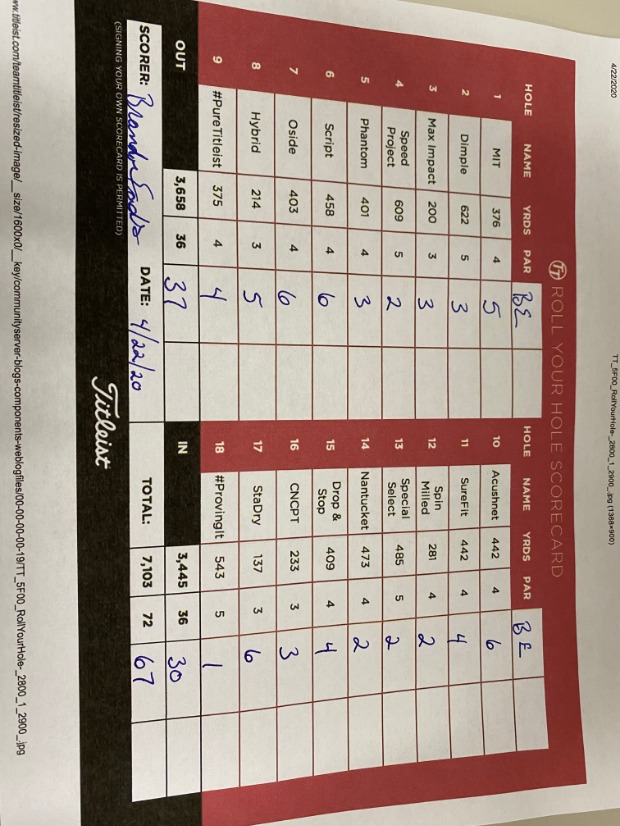 4/22/2020
TT_5F00_RollYourHole-_2800_1_2900_.jpg (1388×900)
TT ROLL YOUR HOLE SCORECARD
HOLE NAME YRDS PAR BE
1 MIT 376 4 5
2 Dimple 622 5 3
3 Max Impact 200 3 3
4 Speed Project 609 5 2
5 Phantom 401 4 3
6 Script 458 4 6
7 Oside 403 4 6
8 Hybrid 214 3 5
9 #PureTitleist 375 4 4
OUT 3,658 36 37
HOLE NAME YRDS PAR BE
10 Acushnet 442 4 6
11 SureFit 442 4 4
12 Spin Milled 281 4 2
13 Special Select 485 5 2
14 Nantucket 473 4 2
15 Drop & Stop 409 4 4
16 CNCPT 233 3 3
17 StaDry 137 3 6
18 #ProvingIt 543 5 1
IN 3,445 36 30
SCORER: DATE: 4/22/20 TOTAL: 7,103 72 67
(SIGNING YOUR OWN SCORECARD IS PERMITTED)
Titleist
ww.titleist.com/teamtitleist/resized-image/__size/1600x0/__key/communityserver-blogs-components-weblogfiles/00-00-00-00-19/TT_5F00_RollYourHole-_2800_1_2900_.jpg